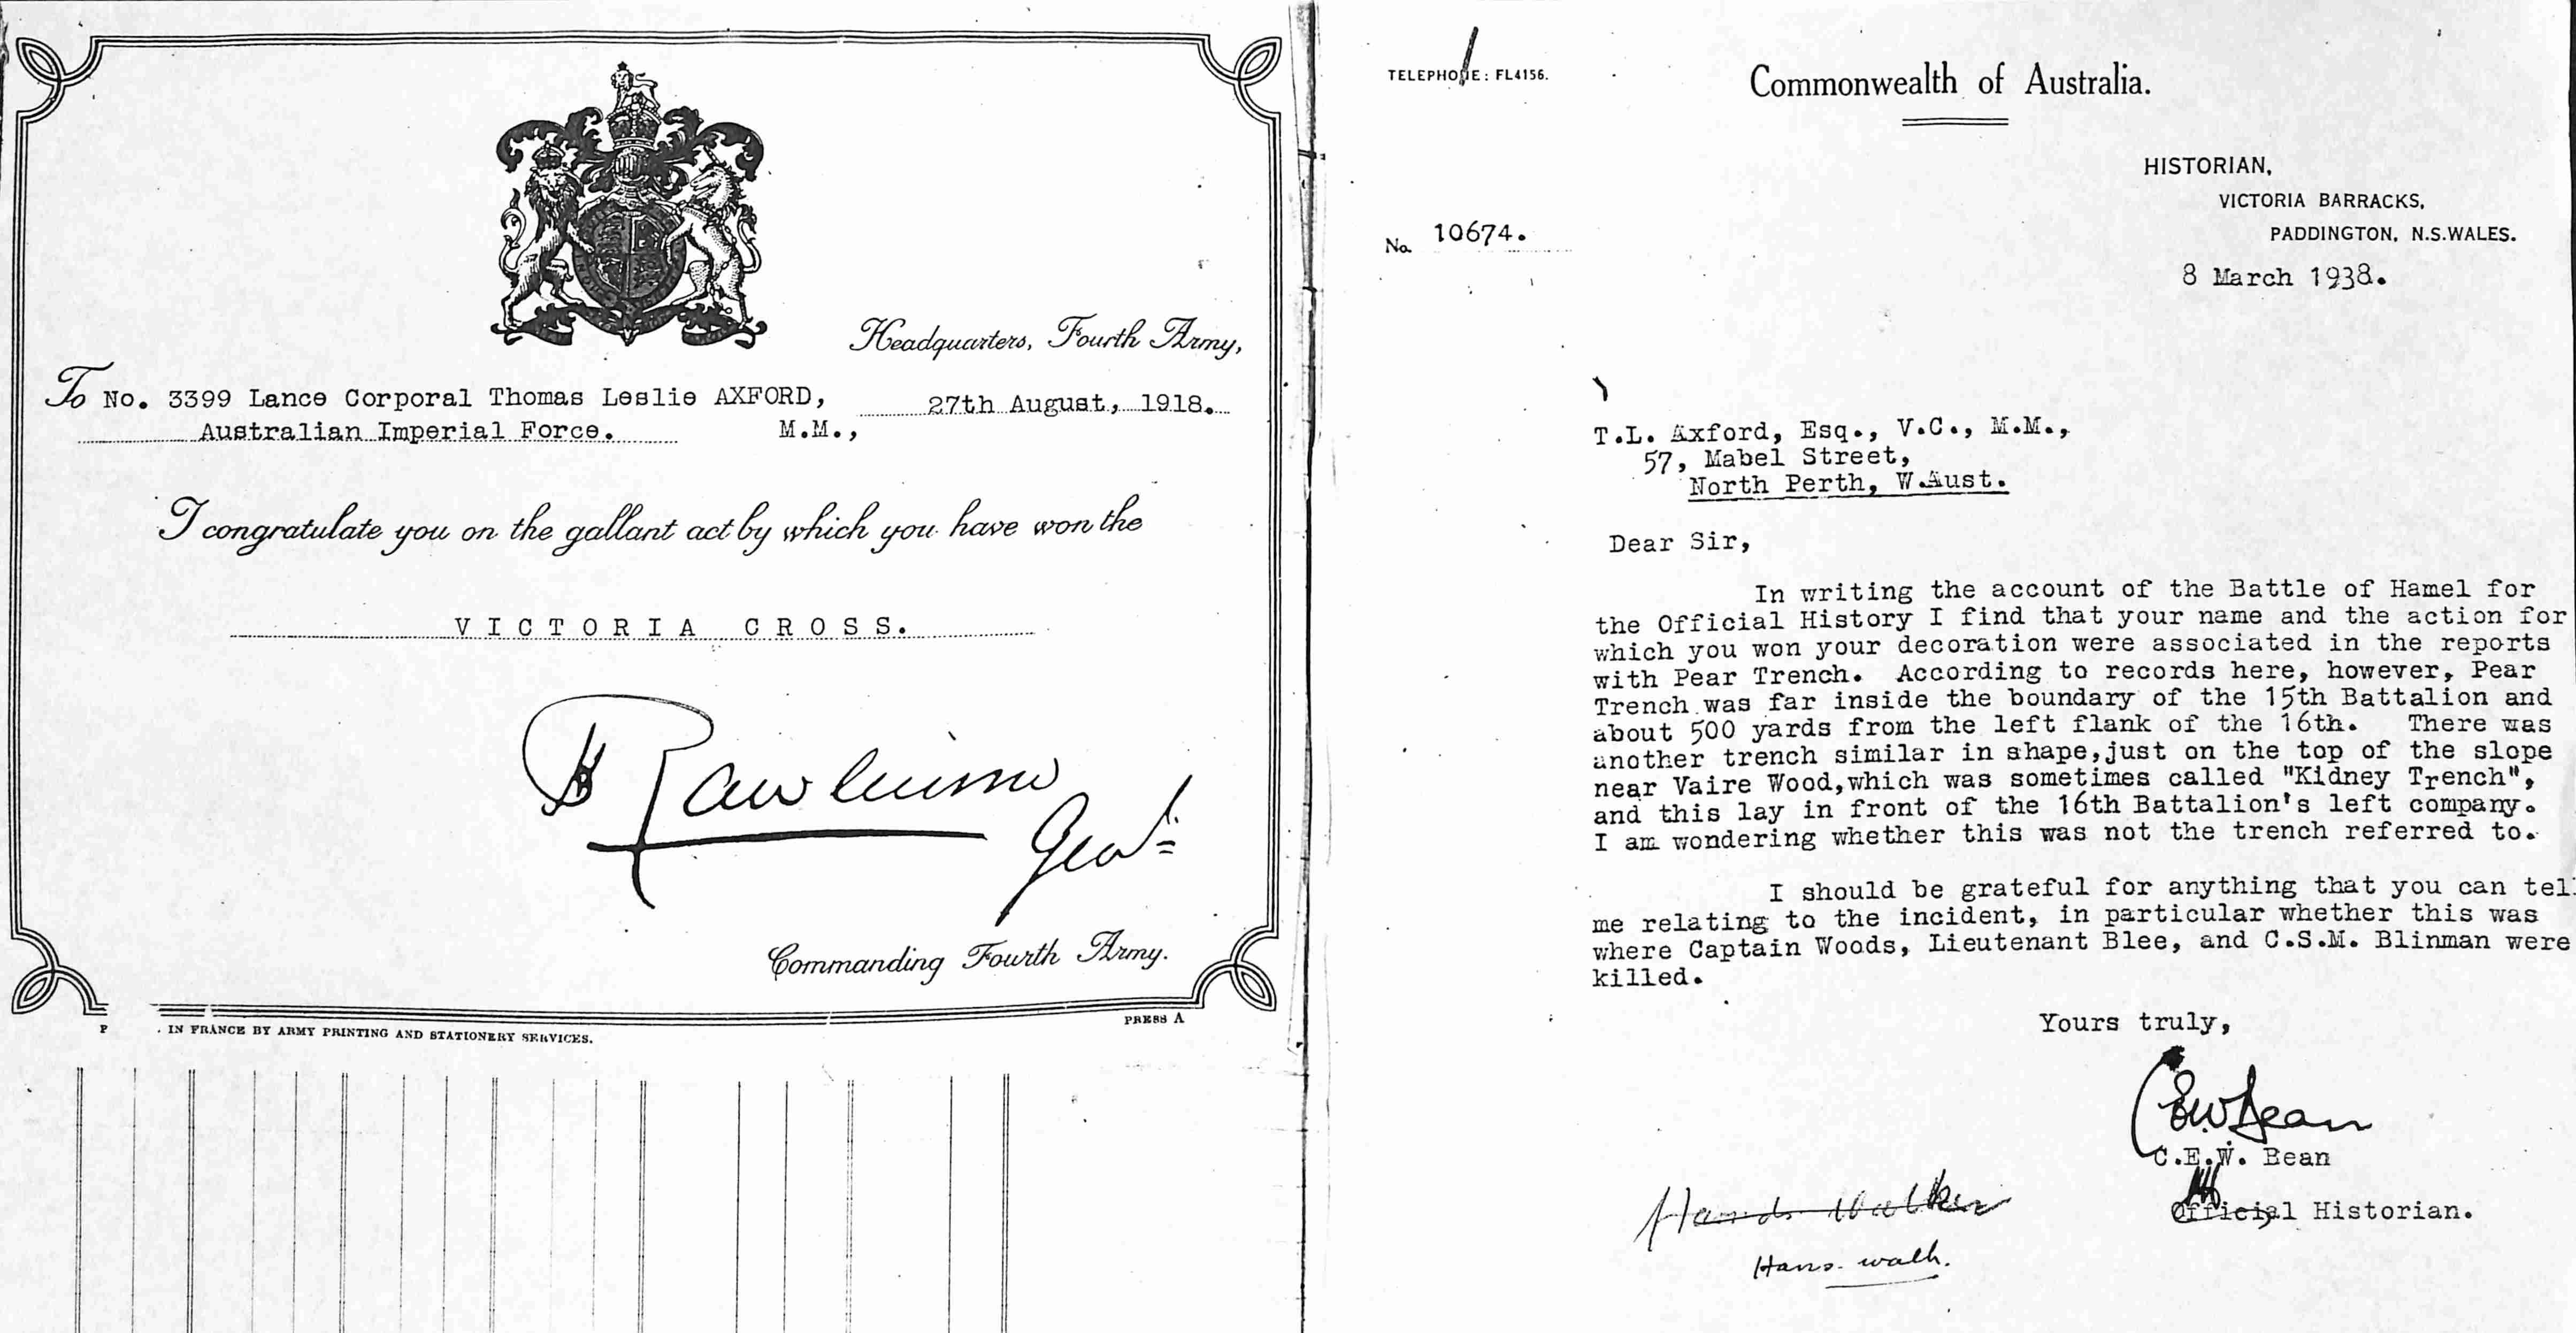 Headquarters, Fourth Army,
To No. 3399 Lance Corporal Thomas Leslie AXFORD,
27th August, 1918.
Australian Imperial Force. M.M.,
I congratulate you on the gallant act by which you have won the
VICTORIA CROSS.
Rawlinson
Genl
Commanding Fourth Army.
P . IN FRANCE BY ARMY PRINTING AND STATIONERY SERVICES.
PRESS A
TELEPHONE: FL4156.
Commonwealth of Australia.
HISTORIAN,
VICTORIA BARRACKS,
PADDINGTON, N.S.WALES.
No. 10674.
8 March 1938.
T.L. Axford, Esq., V.C., M.M.,
57, Mabel Street,
North Perth, W.Aust.
Dear Sir,
In writing the account of the Battle of Hamel for
the Official History I find that your name and the action for
which you won your decoration were associated in the reports
with Pear Trench. According to records here, however, Pear
Trench was far inside the boundary of the 15th Battalion and
about 500 yards from the left flank of the 16th. There was
another trench similar in shape,just on the top of the slope
near Vaire Wood,which was sometimes called "Kidney Trench",
and this lay in front of the 16th Battalion's left company.
I am wondering whether this was not the trench referred to.
I should be grateful for anything that you can tel
me relating to the incident, in particular whether this was
where Captain Woods, Lieutenant Blee, and C.S.M. Blinman were
killed.
Yours truly,
C.E.W. Bean
C.E.W. Bean
Official Historian.